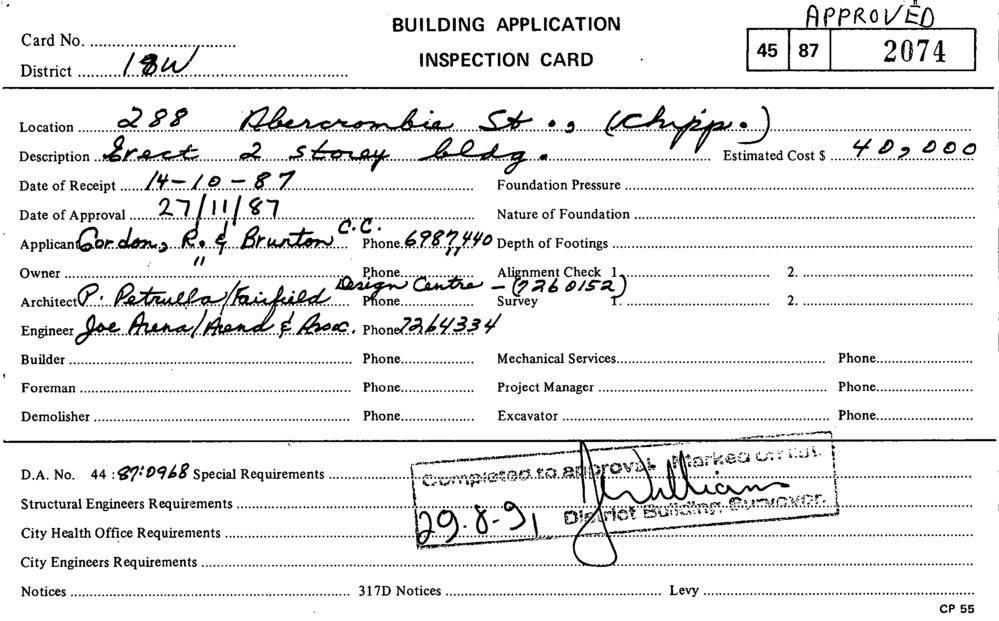 APPROVED
BUILDING APPLICATION
Card No.
45 87 2074
INSPECTION CARD
District 18W
Location 288 Abercrombie St., (Chipp.)
Description Erect 2 storey bldg. Estimated Cost $ 40,000
Date of Receipt 14-10-87 Foundation Pressure
Date of Approval 27/11/87 Nature of Foundation
Applicant Gordon, R. & Brunton C.C. Phone. 6987440 Depth of Footings
Owner " Phone. " Alignment Check 1. 2.
Architect P. Petrulla/Fairfield Design Centre - (7260152) Phone Survey 1. 2.
Engineer Joe Arena/Arena & Assoc. Phone 7264334
Builder Phone. Mechanical Services. Phone.
Foreman Phone. Project Manager Phone.
Demolisher Phone. Excavator Phone.
D.A. No. 44 : 87:0968 Special Requirements
Completed to approval. Marked off list.
Structural Engineers Requirements
J Williams
29.8.91 District Building Surveyor.
City Health Office Requirements
City Engineers Requirements
Notices 317D Notices Levy
CP 55